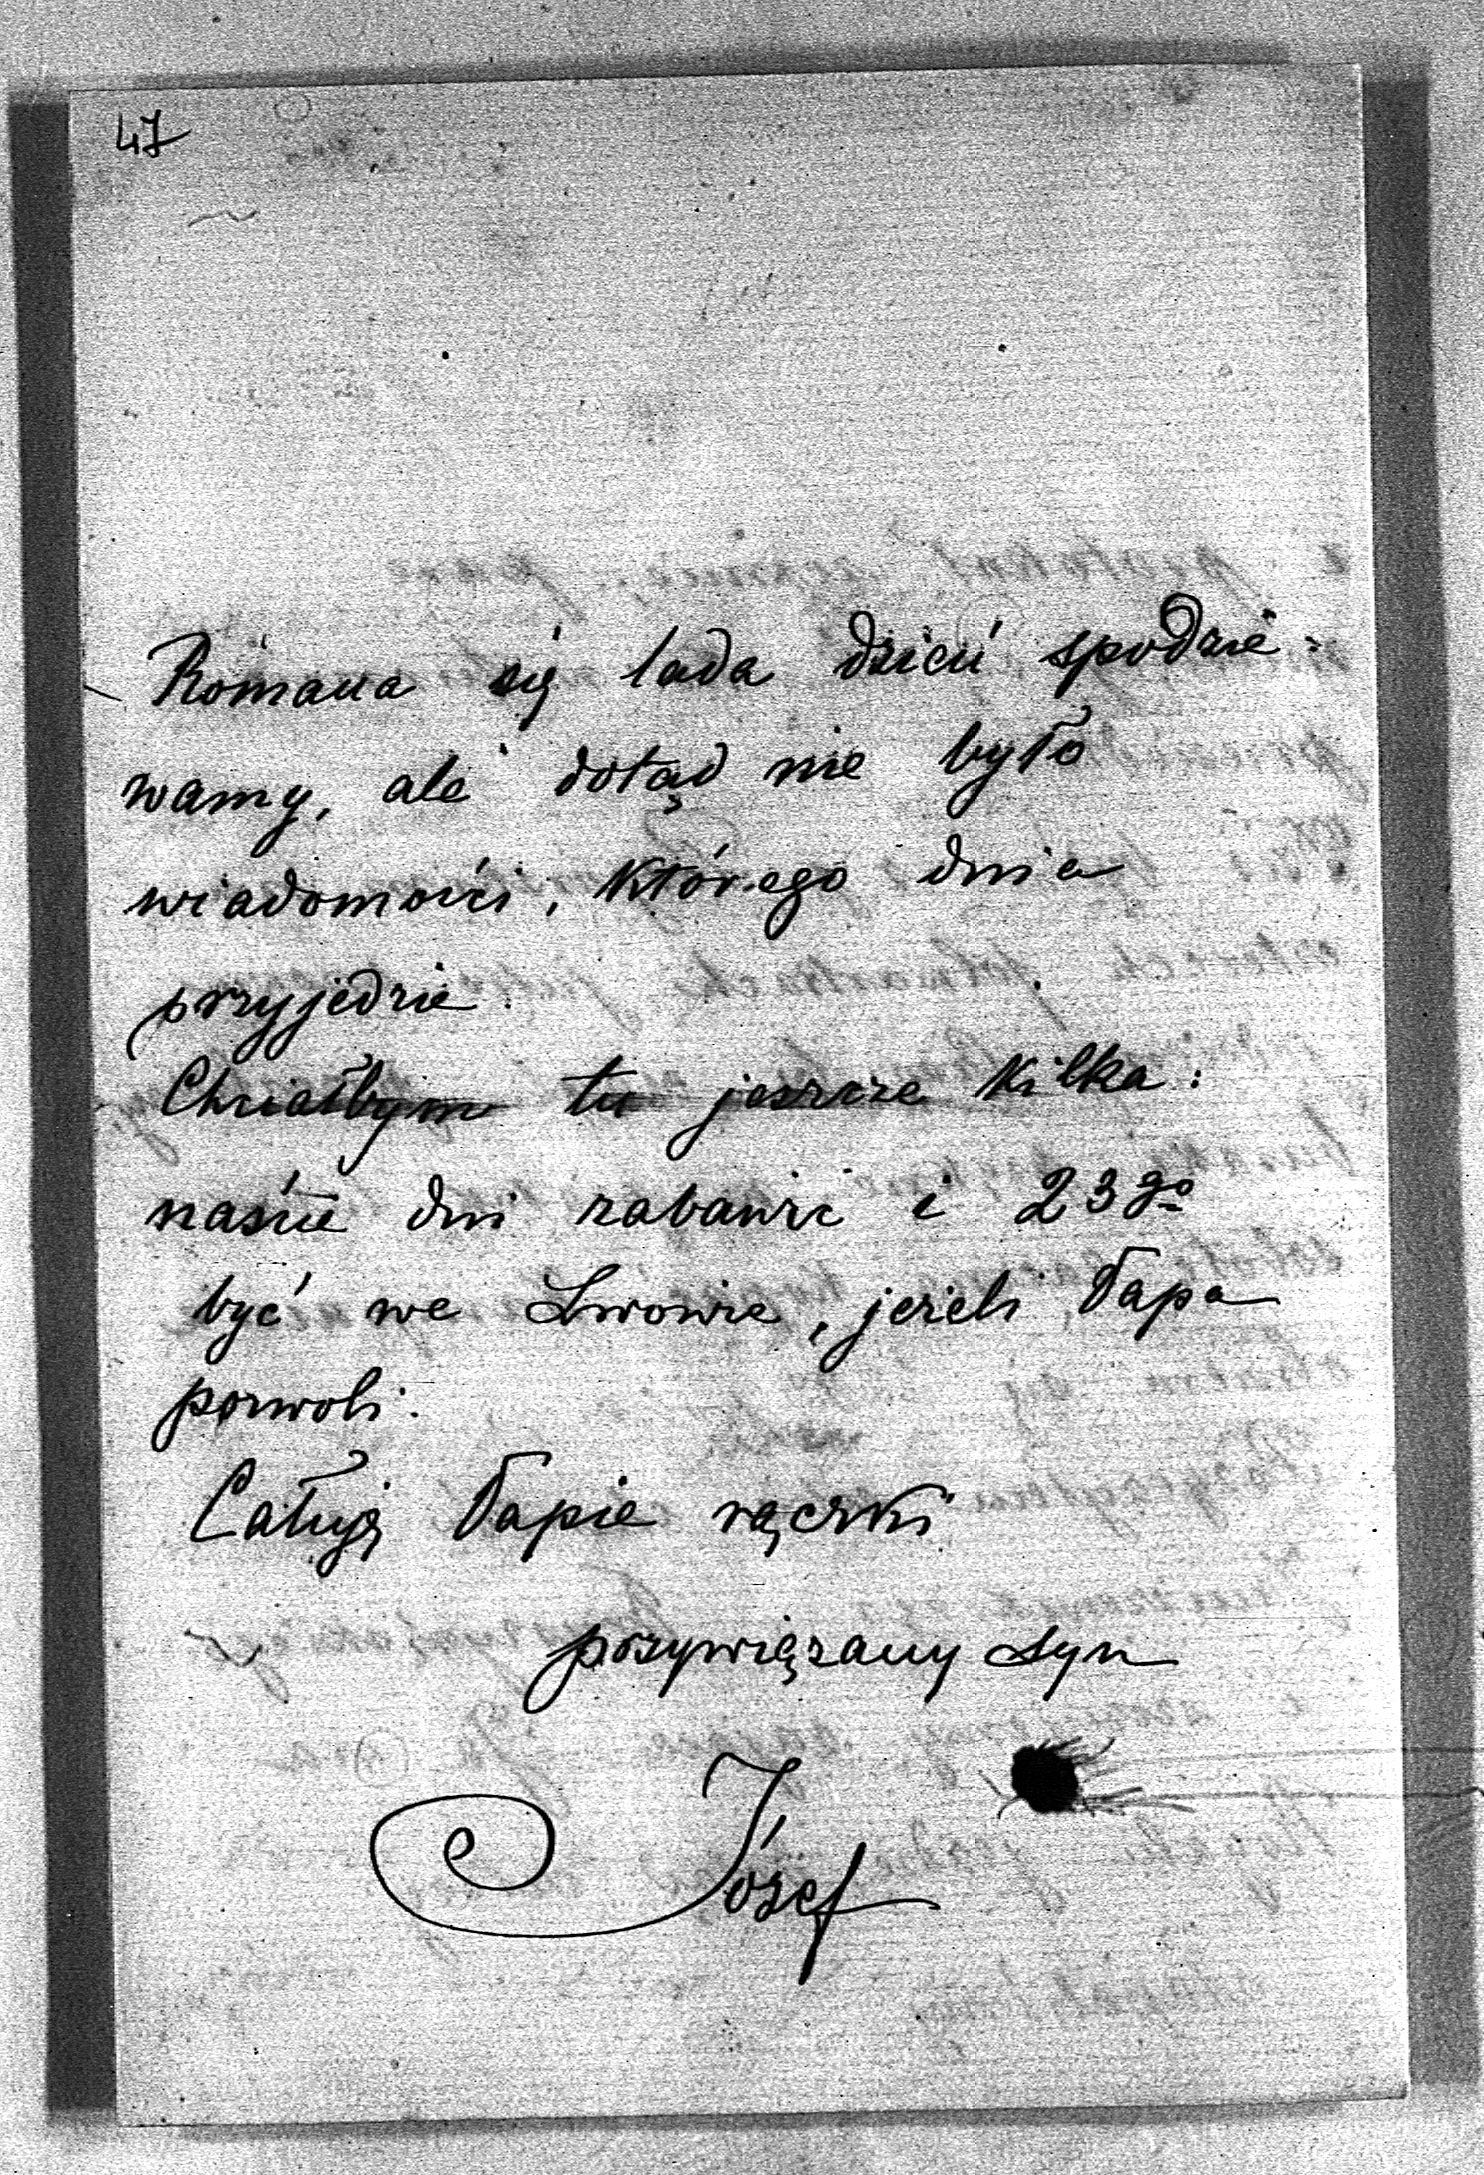 47
Romana się lada dzień spodzie-
wamy, ale dotąd nie było
wiadomości, którego dnia
przyjedzie.
Chciałbym tu jeszcze kilka:
naście dni zabawić i 23go
być we Lwowie, jeżeli Papa
pozwoli.
Całuję Papie rączki
przywiązany syn
Józef